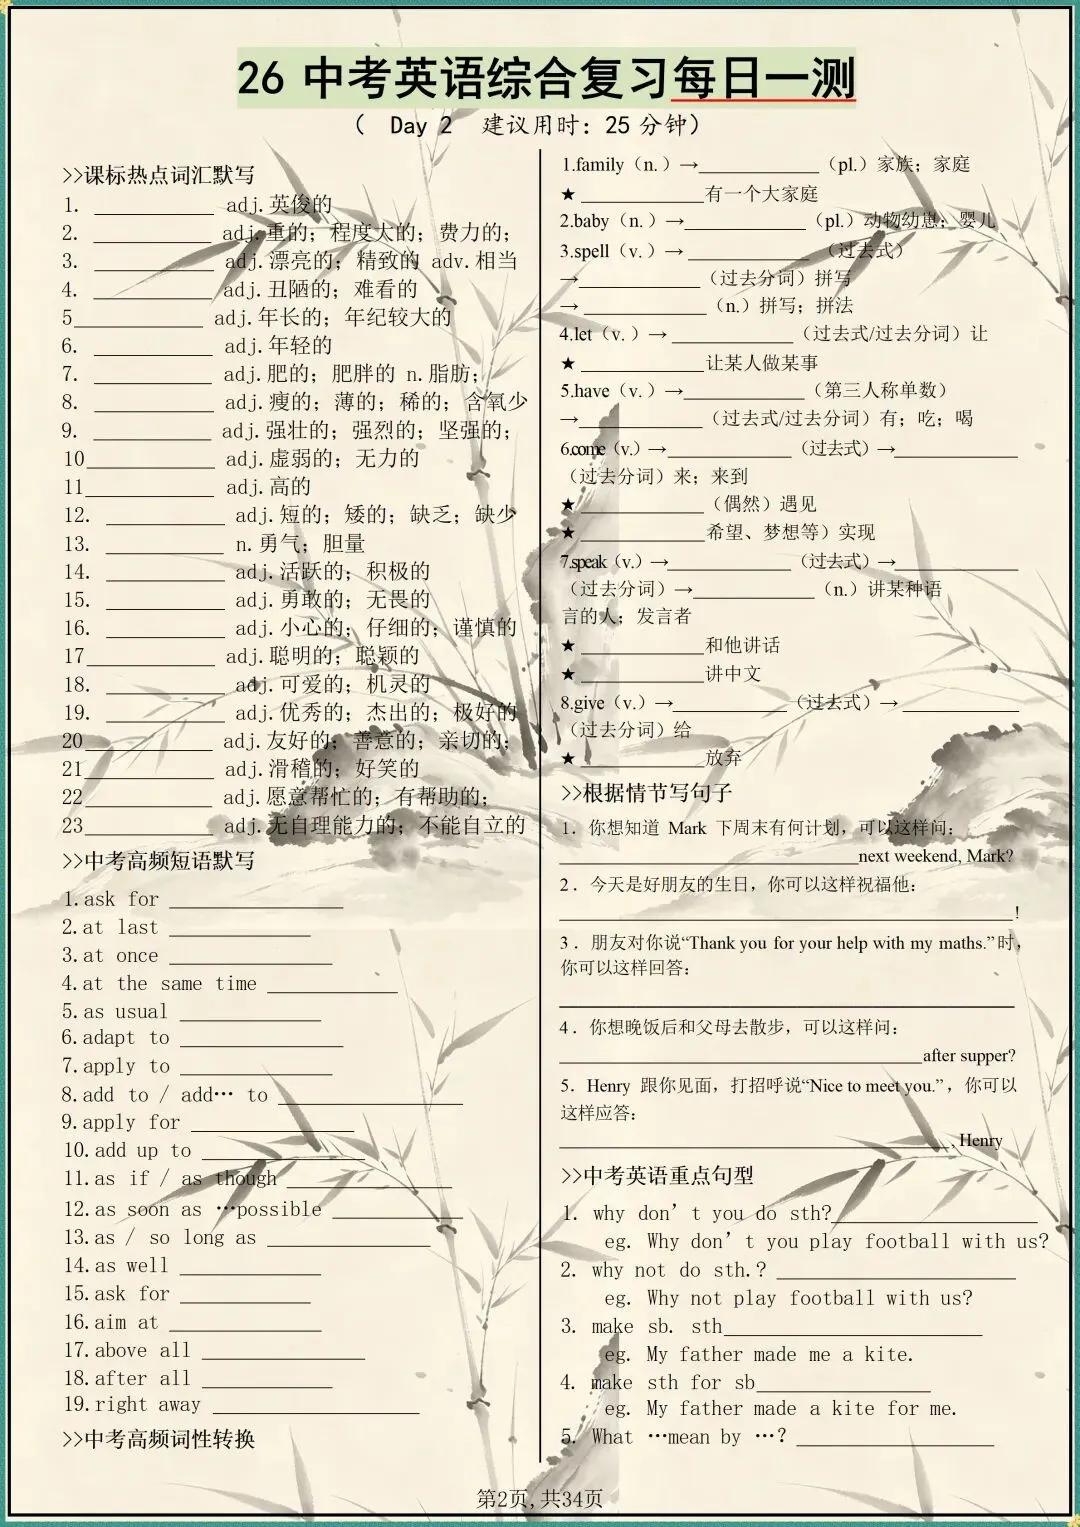 26 中考英语综合复习每日一测
(  Day 2  建议用时：25 分钟)
>>课标热点词汇默写
1. ____________ adj.英俊的
2. ____________ adj.重的；程度大的；费力的；
3. ____________ adj.漂亮的；精致的 adv.相当
4. ____________ adj.丑陋的；难看的
5____________ adj.年长的；年纪较大的
6. ____________ adj.年轻的
7. ____________ adj.肥的；肥胖的 n.脂肪；
8. ____________ adj.瘦的；薄的；稀的；含氧少
9. ____________ adj.强壮的；强烈的；坚强的；
10____________ adj.虚弱的；无力的
11____________ adj.高的
12. ____________ adj.短的；矮的；缺乏；缺少
13. ____________ n.勇气；胆量
14. ____________ adj.活跃的；积极的
15. ____________ adj.勇敢的；无畏的
16. ____________ adj.小心的；仔细的；谨慎的
17____________ adj.聪明的；聪颖的
18. ____________ adj.可爱的；机灵的
19. ____________ adj.优秀的；杰出的；极好的
20____________ adj.友好的；善意的；亲切的；
21____________ adj.滑稽的；好笑的
22____________ adj.愿意帮忙的；有帮助的；
23____________ adj.无自理能力的；不能自立的
>>中考高频短语默写
1.ask for ________________
2.at last _____________
3.at once _______________
4.at the same time ____________
5.as usual _____________
6.adapt to _______________
7.apply to ______________
8.add to / add… to _________________
9.apply for _______________
10.add up to _______________
11.as if / as though _______________
12.as soon as …possible ____________
13.as / so long as _______________
14.as well _____________
15.ask for ____________
16.aim at ______________
17.above all _______________
18.after all ____________
19.right away ___________________
>>中考高频词性转换
1.family（n.）→____________（pl.）家族；家庭
★ ____________有一个大家庭
2.baby（n.）→____________（pl.）动物幼崽；婴儿
3.spell（v.）→ ____________ （过去式）
→____________（过去分词）拼写
→ ____________（n.）拼写；拼法
4.let（v.）→ ____________（过去式/过去分词）让
★ ____________让某人做某事
5.have（v.）→____________（第三人称单数）
→____________（过去式/过去分词）有；吃；喝
6.come（v.）→____________（过去式）→____________
（过去分词）来；来到
★ ____________（偶然）遇见
★ ____________希望、梦想等）实现
7.speak（v.）→____________（过去式）→____________
（过去分词）→____________（n.）讲某种语
言的人；发言者
★ ____________和他讲话
★ ____________讲中文
8.give（v.）→____________（过去式）→ ____________
（过去分词）给
★ ____________放弃
>>根据情节写句子
1. 你想知道 Mark 下周末有何计划，可以这样问：
______________________________next weekend, Mark?
2．今天是好朋友的生日，你可以这样祝福他：
______________________________________________!
3．朋友对你说“Thank you for your help with my maths.”时，
你可以这样回答：
______________________________________________
4．你想晚饭后和父母去散步，可以这样问：
____________________________________after supper?
5．Henry 跟你见面，打招呼说“Nice to meet you.”，你可以
这样应答：
_______________________________________, Henry
>>中考英语重点句型
1. why don’t you do sth?___________________
eg. Why don’t you play football with us?
2. why not do sth.? ______________________
eg. Why not play football with us?
3. make sb. sth________________________
eg. My father made me a kite.
4. make sth for sb________________
eg. My father made a kite for me.
5. What …mean by …? __________________
第2页,共34页